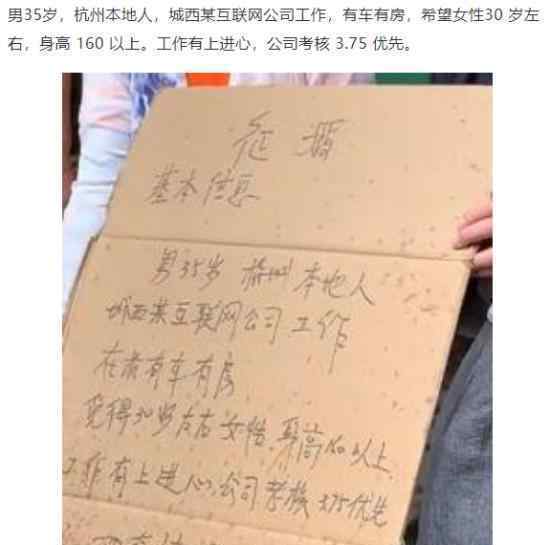 男35岁，杭州本地人，城西某互联网公司工作，有车有房，希望女性30 岁左
右，身高 160 以上。工作有上进心，公司考核 3.75 优先。
征婚
基本信息
男35岁 杭州本地人
城西某互联网公司工作
有车有房
觅得30岁左右女性，身高160以上
工作有上进心，公司考核3.75优先